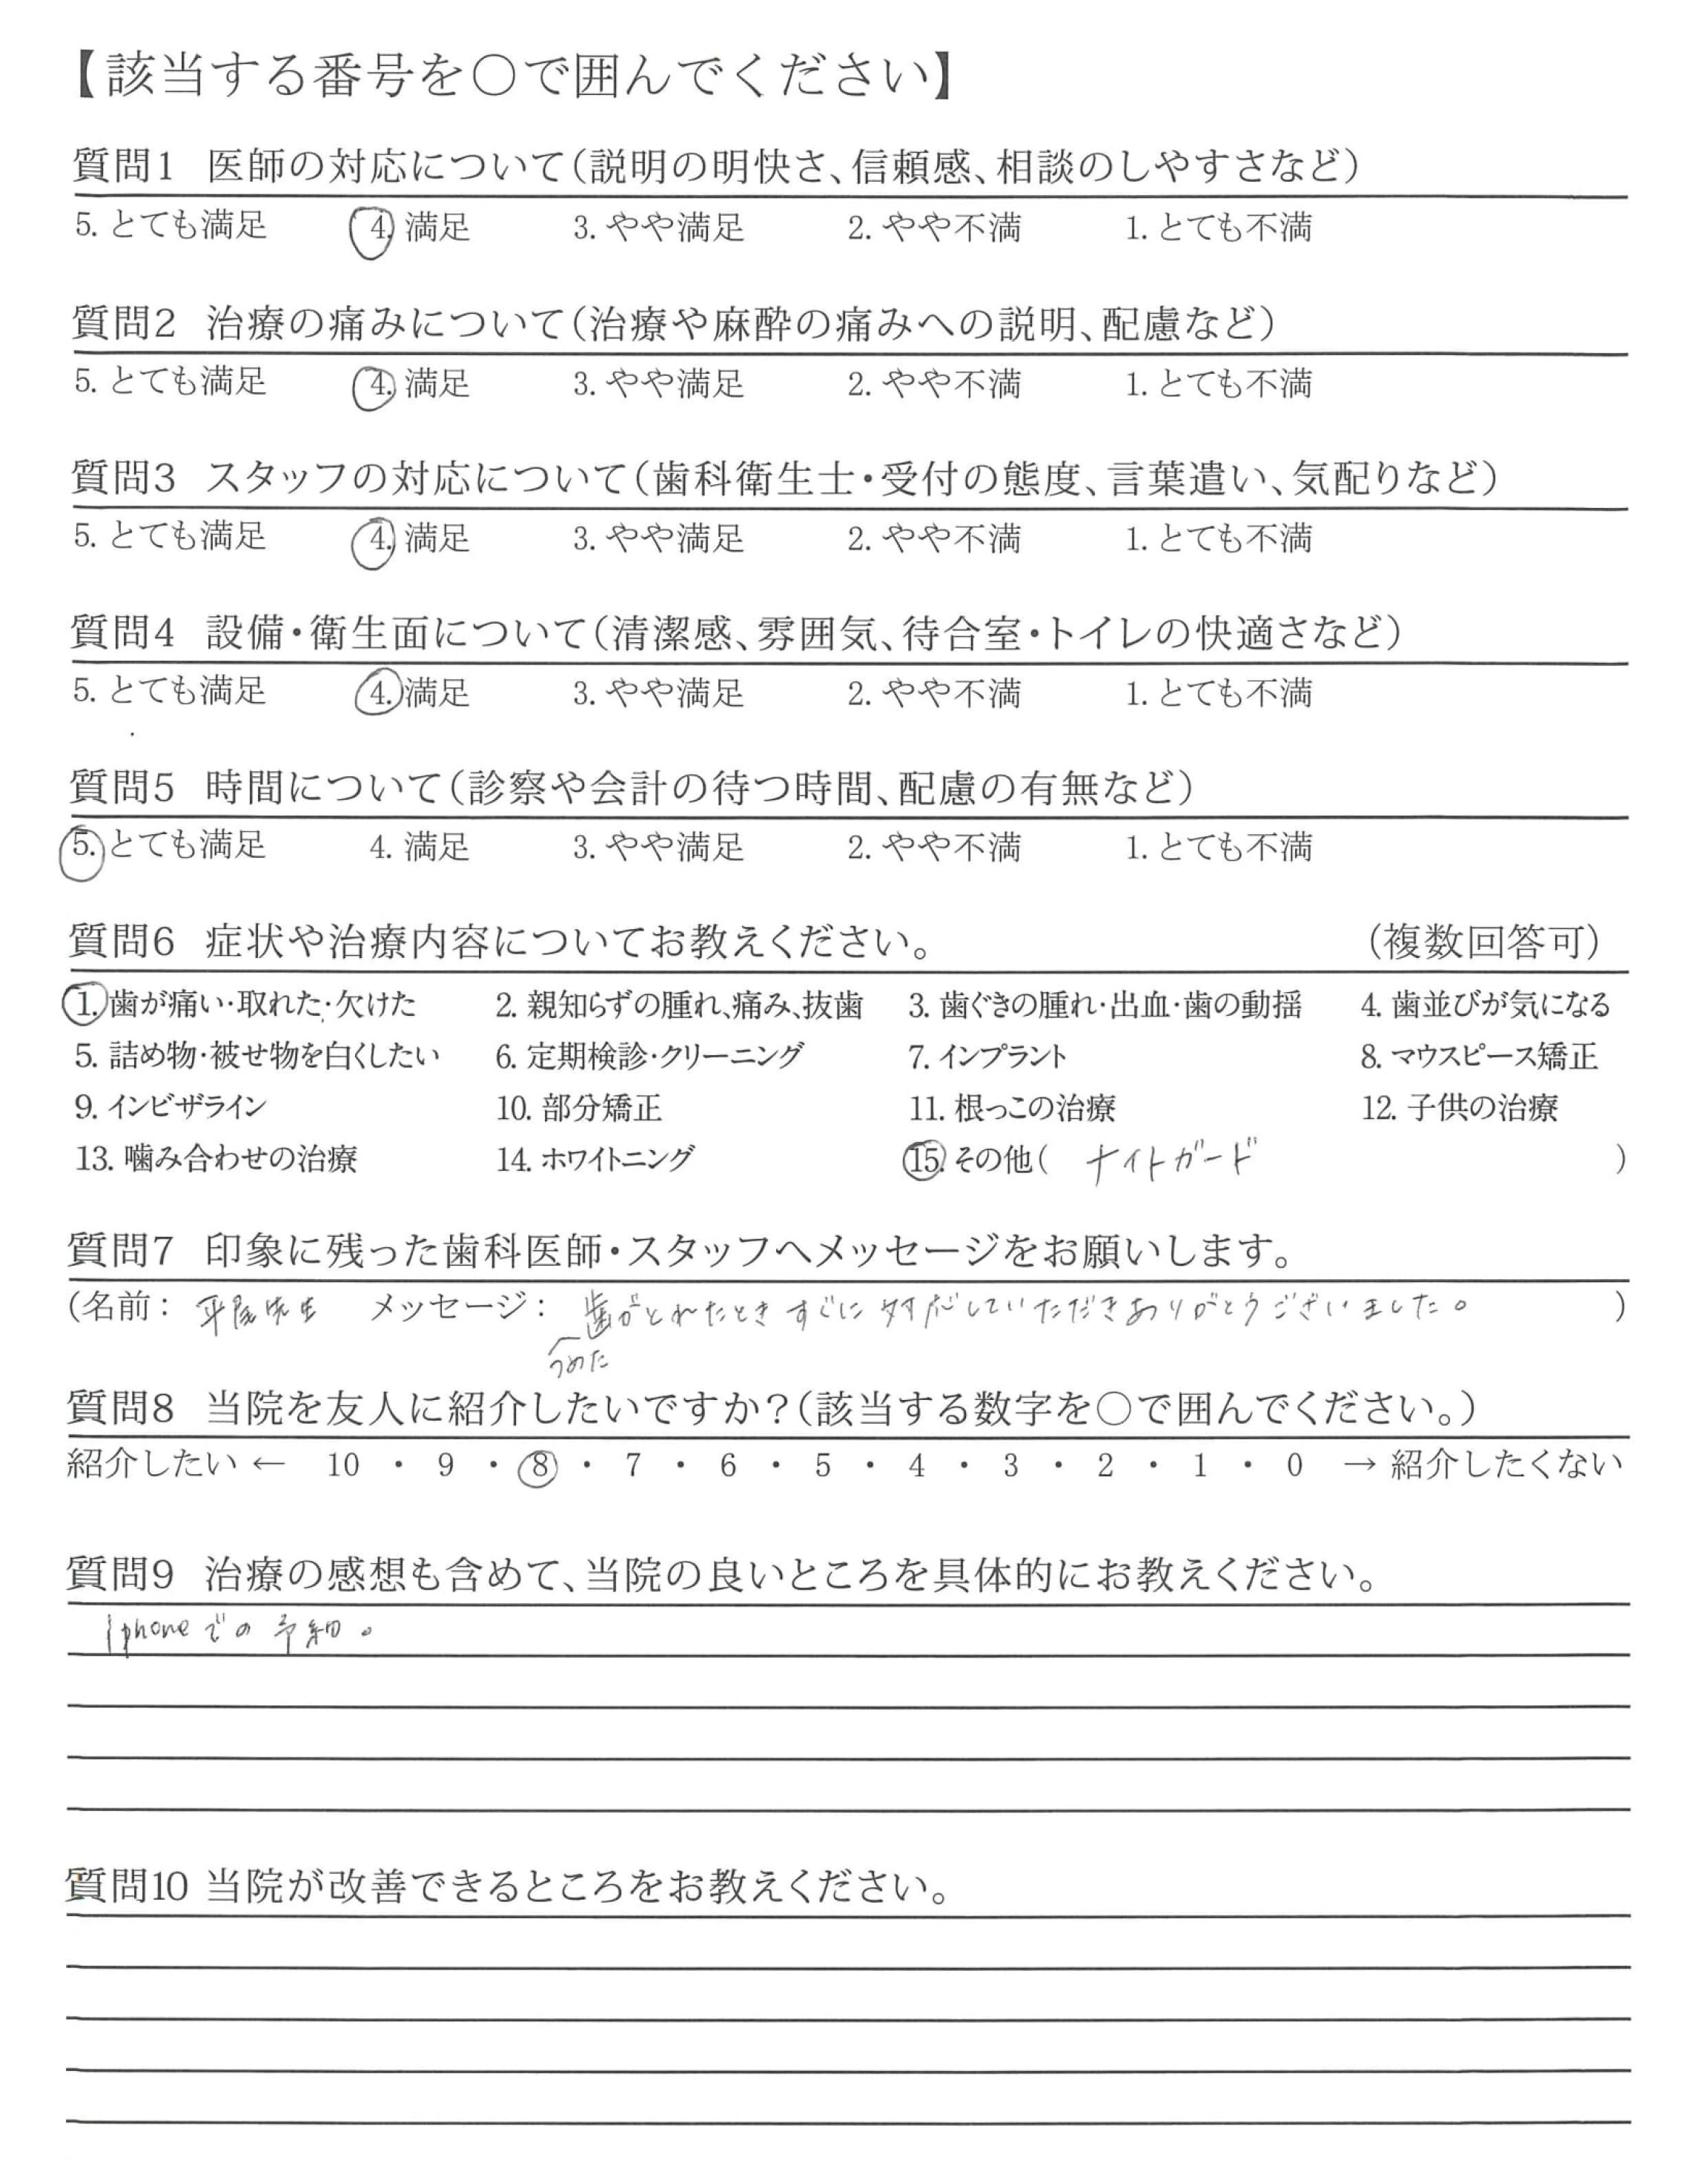 【該当する番号を○で囲んでください】
質問1 医師の対応について(説明の明快さ、信頼感、相談のしやすさなど)
5. とても満足 4. 満足 3. やや満足 2. やや不満 1. とても不満
質問2 治療の痛みについて(治療や麻酔の痛みへの説明、配慮など)
5. とても満足 4. 満足 3. やや満足 2. やや不満 1. とても不満
質問3 スタッフの対応について(歯科衛生士・受付の態度、言葉遣い、気配りなど)
5. とても満足 4. 満足 3. やや満足 2. やや不満 1. とても不満
質問4 設備・衛生面について(清潔感、雰囲気、待合室・トイレの快適さなど)
5. とても満足 4. 満足 3. やや満足 2. やや不満 1. とても不満
質問5 時間について(診察や会計の待つ時間、配慮の有無など)
5. とても満足 4. 満足 3. やや満足 2. やや不満 1. とても不満
質問6 症状や治療内容についてお教えください。 (複数回答可)
1. 歯が痛い・取れた・欠けた 2. 親知らずの腫れ、痛み、抜歯 3. 歯ぐきの腫れ・出血・歯の動揺 4. 歯並びが気になる
5. 詰め物・被せ物を白くしたい 6. 定期検診・クリーニング 7. インプラント 8. マウスピース矯正
9. インビザライン 10. 部分矯正 11. 根っこの治療 12. 子供の治療
13. 噛み合わせの治療 14. ホワイトニング 15. その他( ナイトガード )
質問7 印象に残った歯科医師・スタッフへメッセージをお願いします。
(名前: 平尾先生 メッセージ: 歯がとれたときすぐに対応していただきありがとうございました。 )
つめた
質問8 当院を友人に紹介したいですか?(該当する数字を○で囲んでください。)
紹介したい ← 10 ・ 9 ・ 8 ・ 7 ・ 6 ・ 5 ・ 4 ・ 3 ・ 2 ・ 1 ・ 0 → 紹介したくない
質問9 治療の感想も含めて、当院の良いところを具体的にお教えください。
iphoneでの予約。
質問10 当院が改善できるところをお教えください。